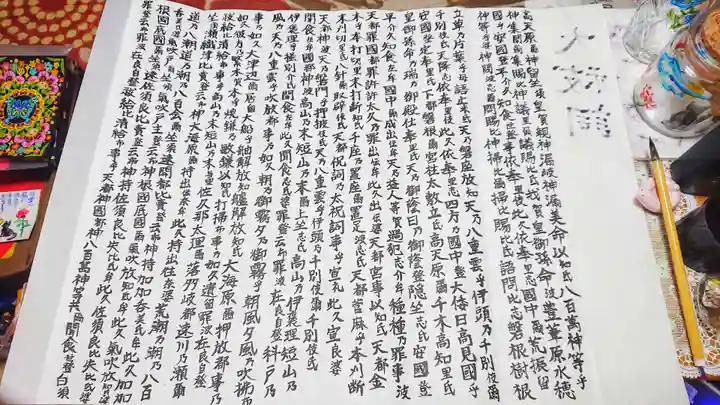 大祓詞
高天原爾神留坐須皇賀親神漏岐神漏美命以知氐八百萬神等乎
神集閇爾集賜比神議里爾議賜比氐我賀皇御孫命波豐葦原水穂
國乎安國登平介久知食世登事依奉里伎此久依奉里志國中爾荒振留
神等乎婆神問婆志爾問賜比神掃比爾掃比賜比氐語問比志磐根樹根
立草乃片葉乎母語止米氐天乃磐座放知天乃八重雲乎伊頭乃千別伎爾
千別伎氐天降志依奉里伎此久依奉里志四方乃國中登大倭日高見國乎
安國登定奉里氐下都磐根爾宮柱太敷立氐高天原爾千木高知里氐
皇御孫命乃瑞乃御殿仕奉里氐天乃御蔭日乃御蔭登隱坐志氐安國登
平介久知食左牟國中爾成出伝牟天乃益人等賀過犯志介牟種種乃罪事波
天都罪國都罪許許太久乃罪出伝牟此久出伝婆天都宮事以知氐天都金
木乎本打切里末打断知氐千座乃置座爾置足波志氐天都菅麻乎本刈断
末刈切里氐八針爾取辟伎氐天都祝詞乃太祝詞事乎宣礼此久宣良婆
天都神波天乃磐門乎押披伎氐天乃八重雲乎伊頭乃千別伎爾千別伎氐
聞食左牟國都神波高山乃末短山乃末爾上坐志氐高山乃伊褒理短山乃
伊褒理乎掻別介氐聞食左牟此久聞食志氐婆罪登云布罪波在良自登科戸乃
風乃天乃八重雲乎吹放都事乃如久朝乃御霧夕乃御霧乎朝風夕風乃吹拂布
事乃如久大津辺爾居留大船乎舳解放知艫解放知氐大海原爾押放都事乃
如久彼方乃繁木賀本乎焼鎌乃敏鎌以知氐打掃布事乃如久遺留罪波在良自登
祓給比清給布事乎高山乃末短山乃末与里佐久那太理爾落多岐都速川乃瀬爾
坐須瀬織津比賣登云布神大海原爾持出伝奈牟此久持出往奈婆荒潮乃潮乃八百
道乃八潮道乃潮乃八百會爾坐須速開都比賣登云布神持加加呑美氐牟此久加加
呑美氐婆氣吹戸爾坐須氣吹戸主登云布神根國底國爾氣吹放知氐牟此久氣吹放知氐婆
根國底國爾坐須速佐須良比賣登云布神持佐須良比失比氐牟此久佐須良比失比氐婆
罪登云布罪波在良自登祓給比清給布事乎天都神國都神八百萬神等共爾聞食登白須